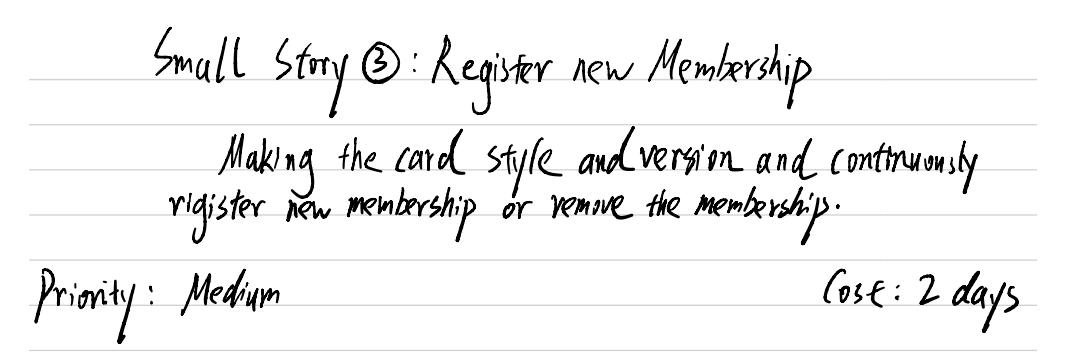 Small Story ③: Register new Membership
Making the card style and version and continuously
rigister new membership or remove the membership.
Priority: Medium
Cost: 2 days